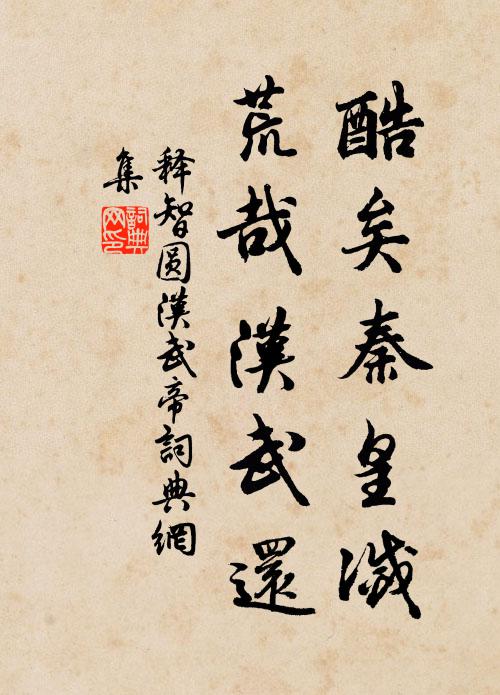 酷矣秦皇滅
荒哉漢武還
释智圆漢武帝詞典網
集
詞典
网印